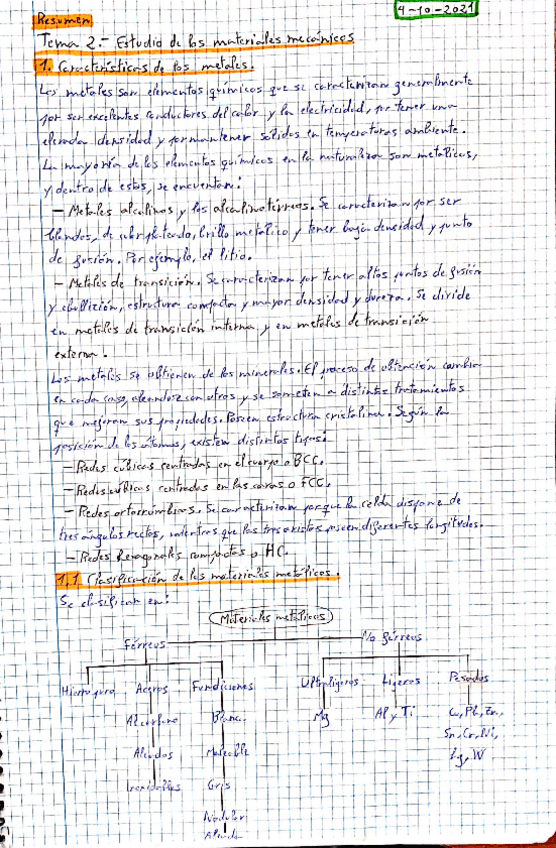 Resumen
4-10-2021
Tema 2.- Estudio de los materiales mecánicos
1. Características de los metales.
Los metales son elementos químicos que se caracterizan generalmente
por ser excelentes conductores del calor y la electricidad, por tener una
elevada densidad y por mantener sólidos en temperaturas ambiente.
La mayoría de los elementos químicos en la naturaleza son metálicos,
y dentro de estos, se encuentran:
- Metales alcalinos y los alcalinotérreos. Se caracterizan por ser
blandos, de color plateado, brillo metálico y tener baja densidad y punto
de fusión. Por ejemplo, el litio.
- Metales de transición. Se caracterizan por tener altos puntos de fusión
y ebullición, estructura compacta y mayor densidad y dureza. Se divide
en metales de transición interna y en metales de transición
externa.
Los metales se obtienen de los minerales. El proceso de obtención cambia
en cada caso, aleandose con otros y se someten a distintos tratamientos
que mejoran sus propiedades. Poseen estructura cristalina. Según la
posición de los átomos, existen distintos tipos:
- Redes cúbicas centradas en el cuerpo o BCC.
- Redes cúbicas centradas en las caras o FCC.
- Redes ortorrómbicas. Se caracterizan porque la celda dispone de
tres ángulos rectos, mientras que las tres aristas poseen diferentes longitudes.
- Redes hexagonales compactas o HC.
1.1 Clasificación de los materiales metálicos.
Se clasifican en:
Materiales metálicos
Férreos No férreos
Hierro puro Aceros Fundiciones Ultraligeros Ligeros Pesados
Al carbono Blanca Mg Al y Ti Cu, Pb, Zn,
Aleados Maleable Sn, Cr, Ni,
Hg, W
Inoxidables Gris
Nodular
Aleada